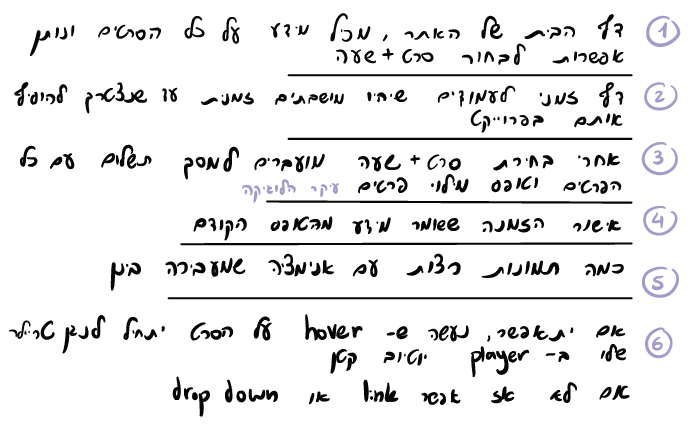 1 דף הבית של האתר, מכיל מידע על כל הסרטים ונותן
אפשרות לבחור סרט + שעה
2 דף זמני לעמודים שיהיו מושבתים זמנית עד שנצטרך להוסיף
אותם בפרוייקט
3 אחרי בחירת סרט + שעה מועברים למסך תשלום עם כל
הפרטים וטופס מילוי פרטים עיקר הלוגיקה
4 אישור הזמנה ששומר מידע מהטופס הקודם
5 כמה תמונות רצות עם אנימציה שמעבירה בינן
6 אם יתאפשר, נעשה ש- hover על הסרט יתחיל לנגן טריילר
שלו ב- player יוטיוב קטן
אם לא אז אפשר link או drop down